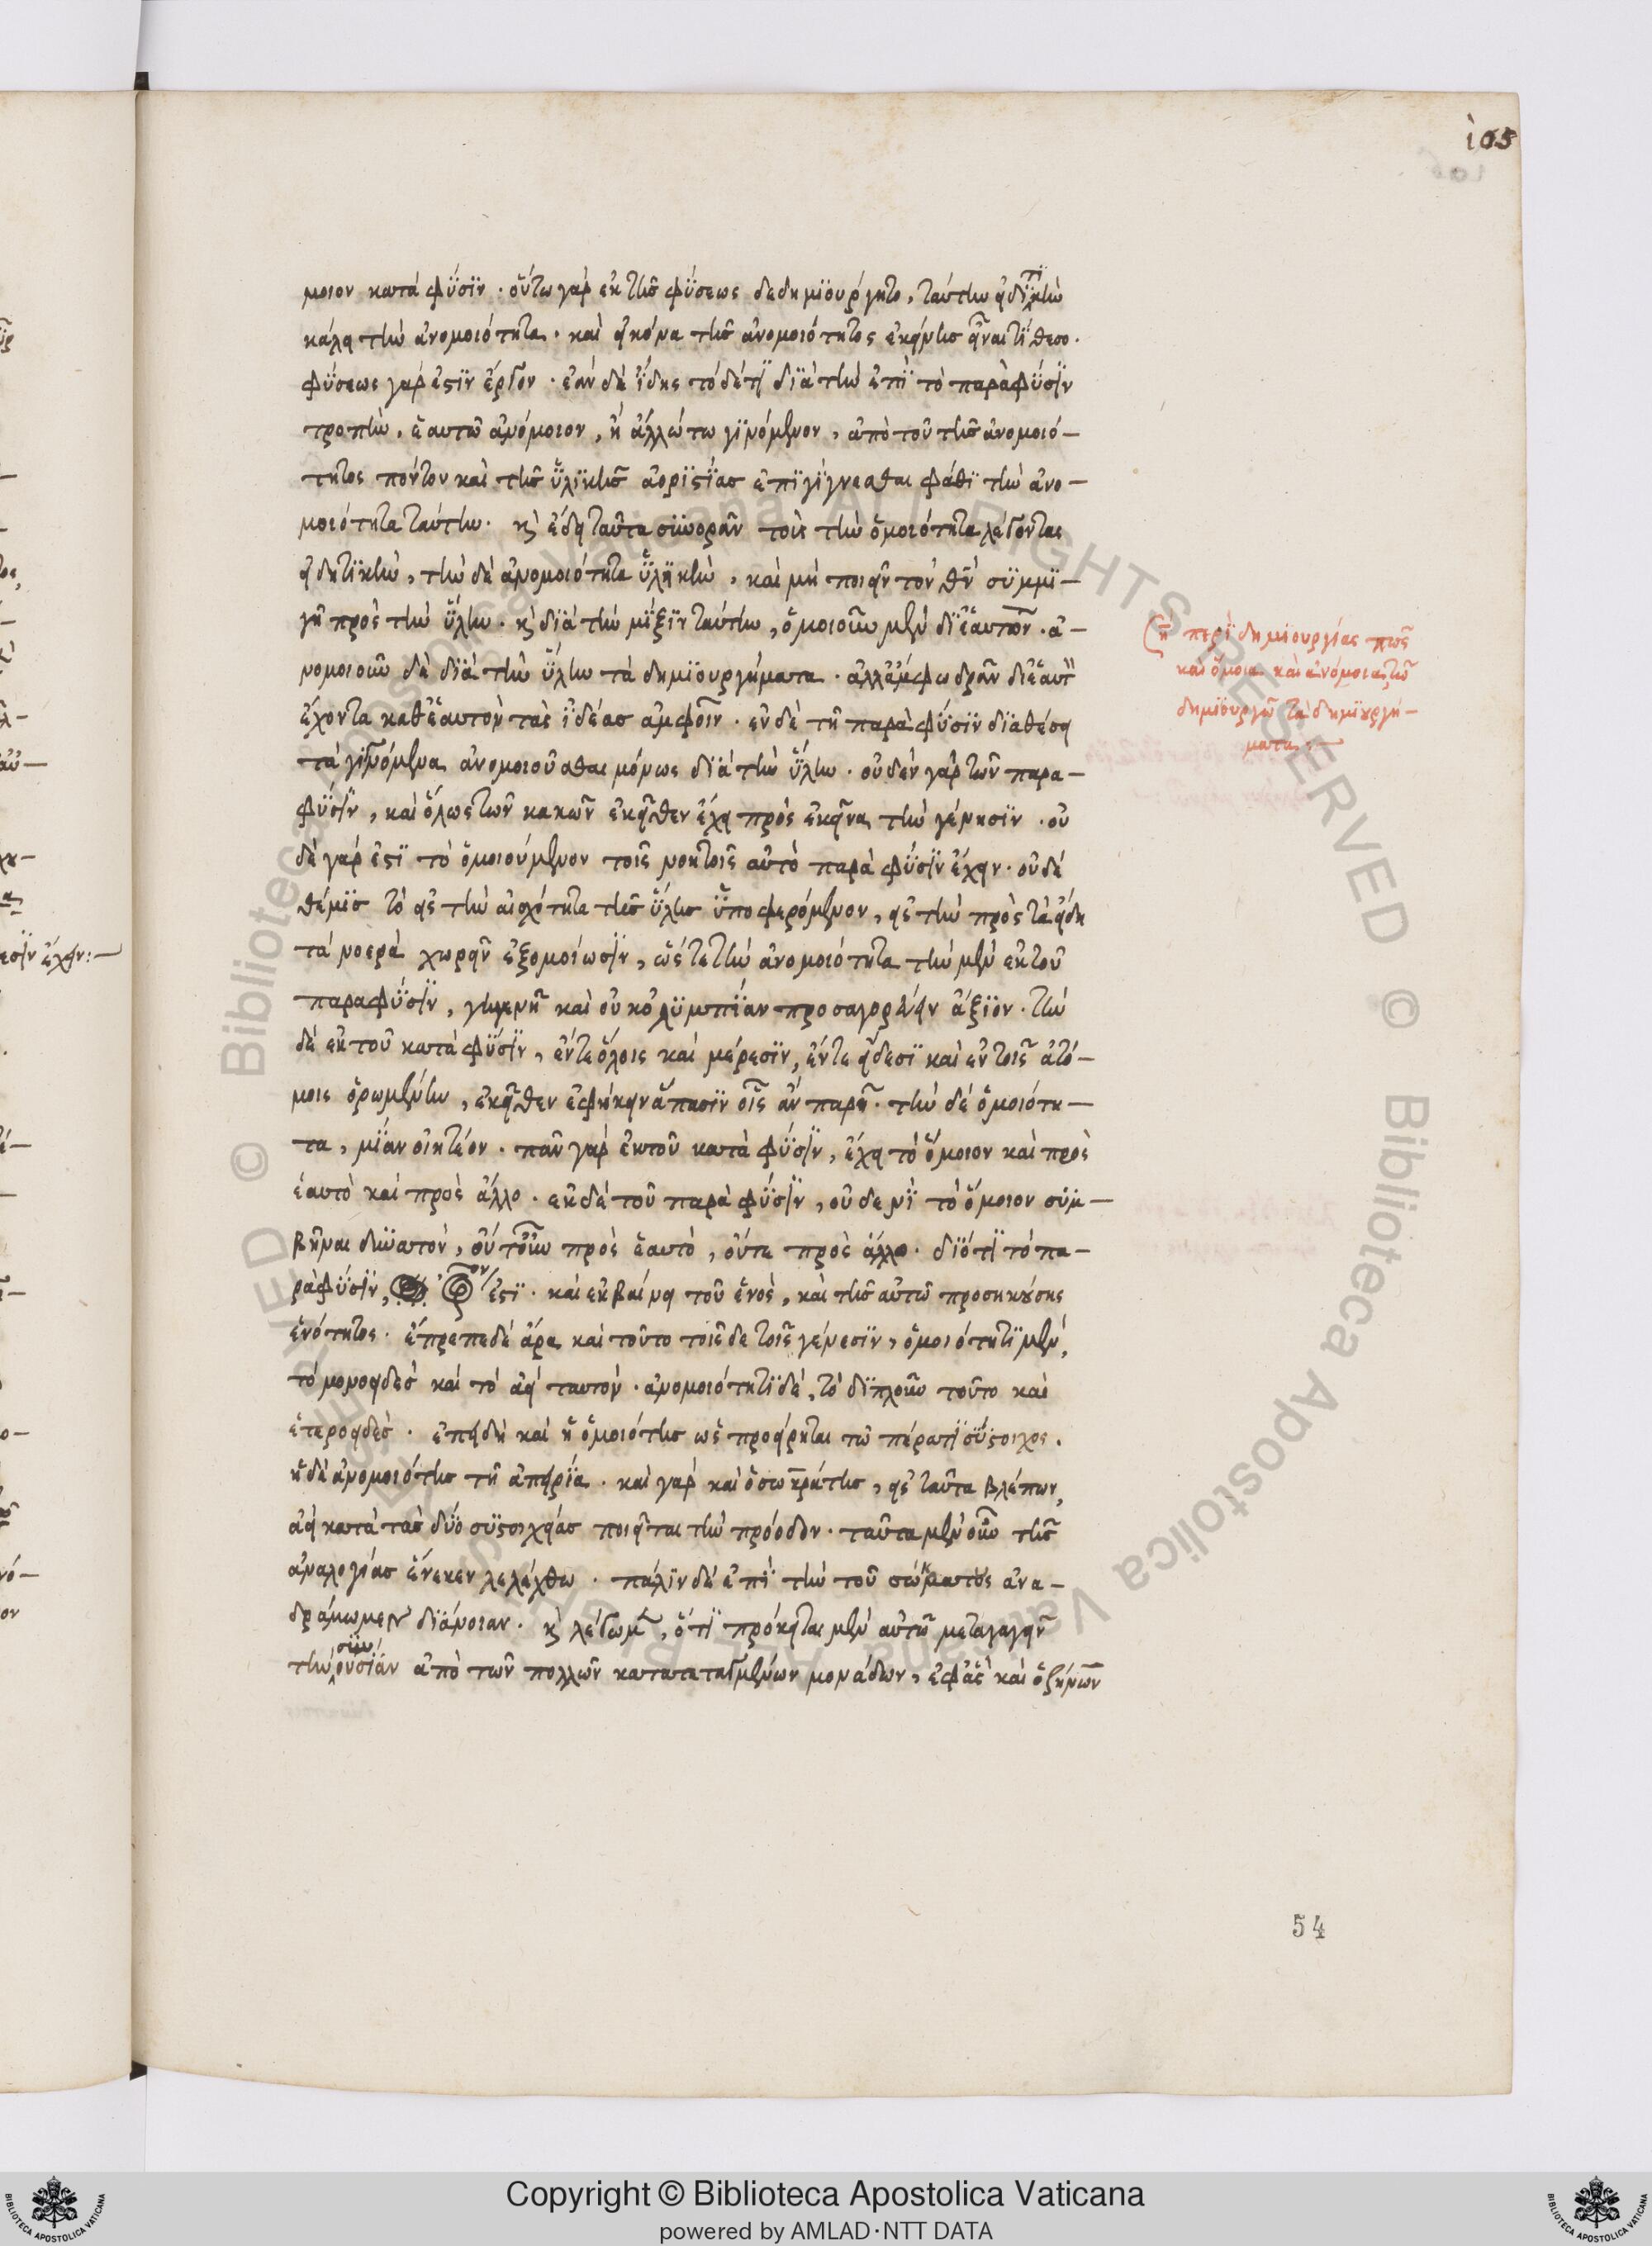 105
μοιον κατὰ φύσϊν · οὕτω γὰρ ἐκ τῆς φύσεως δεδημϊούργητο, ταύτην εἰδητϊκὴν
κάλει τὴν ἀνομοιότητα · καὶ εἰκόνα τῆς ἀνομοιότητος ἐκείνης εἶναι τίθεσο ·
φύσεως γάρ ἐστϊν ἔργον · ἐὰν δὲ ἴδης τόδέ τϊ δϊὰ τὴν ἐπϊ τὸ παρὰ φύσϊν
τροπὴν, ἑαυτῶ ἀνόμοιον, ἢ ἄλλω τω γϊνόμενον, ἀπὸ τοῦ τῆς ἀνομοιό-
τητος πόντου καὶ τῆς ὑλϊκῆς ἀορϊστίας ἐπϊγίγνεσθαι φάθϊ τὴν ἀνο-
μοιότητα ταύτην · κ ἔδει ταῦτα συνορᾶν τοὺς τὴν ὁμοιότητα λέγοντας
εἰδητϊκὴν, τὴν δὲ ἀνομοιότητα ὑλϊκὴν, καὶ μὴ ποιεῖν τὸν θν συμμϊ-
γῆ πρὸς τὴν ὕλην · κ δϊὰ τὴν μῖξϊν ταύτην, ὁμοιοῦν μὲν δϊ ἑαυτὸν · ἀ-
νομοιοῦν δὲ δϊὰ τὴν ὕλην τὰ δημϊουργήματα · ἀλλ ἄμφω δρᾶν δι ἑαυτ
ἔχοντα καθ ἑαυτὸν τὰς ἰδέας ἀμφοῖν · ἐν δὲ τῆ παρὰ φύσϊν δϊαθέσει
τὰ γϊνόμενα ἀνομοιοῦσθαι μόνως δϊὰ τὴν ὕλην · οὐδὲν γὰρ τῶν παρα-
φύσϊν, καὶ ὅλως τῶν κακῶν ἐκεῖθεν ἔχει πρὸς ἐκεῖνα τὴν γένησϊν · οὐ
δὲ γάρ ἐστϊ τὸ ὁμοιούμενον τοῖς νοητοῖς αὐτὸ παρὰ φύσϊν ἔχειν · οὐδὲ
θέμϊς τὸ εἰς τὴν αἰσχότητα τῆς ὕλης ὑποφερόμενον, εἰς τὴν πρὸς τὰ εἴδη
τὰ νοερὰ χωρεῖν ἐξομοίωσϊν, ὥστε τὴν ἀνομοιότητα τὴν μὲν ἐκ τοῦ
παραφύσϊν, γηϊνην καὶ οὐκ ὀλυμπίαν προσαγορεύειν ἄξϊον · τὴν
δὲ ἐκ τοῦ κατὰ φύσϊν, ἔν τε ὅλοις καὶ μέρεσϊν, ἔν τε εἴδεσϊ καὶ ἐν τοῖς ἀτό-
μοις ὁρωμένην, ἐκεῖθεν ἐφήκειν ἅπασϊν οἷς ἂν παρῆ · τὴν δὲ ὁμοιότη-
τα, μίαν οἰητέον · πᾶν γὰρ ἐκ τοῦ κατὰ φύσϊν, ἔχει τὸ ὅμοιον καὶ πρὸς
ἑαυτὸ καὶ πρὸς ἄλλο · ἐκ δὲ τοῦ παρὰ φύσϊν, οὐδενϊ τὸ ὅμοιον συμ-
βῆναι δυνατὸν, οὔτ οὖν πρὸς ἑαυτὸ, οὔτε πρὸς ἄλλο · δϊότϊ τὸ πα-
ρὰ φύσϊν, ἐστϊ · καὶ ἐκβαίνει τοῦ ἑνὸς, καὶ τῆς αὐτῶ προσηκούσης
ἑνότητος · ἔπρεπε δὲ ἄρα καὶ τοῦτο τοῖς δε τοῖς γένεσϊν, ὁμοιότητϊ μὲν,
τὸ μονοειδὲς καὶ τὸ ἀεὶ ταυτὸν · ἀνομοιότητϊ δὲ, τὸ δϊπλοῦν τοῦτο καὶ
ἑτεροειδὲς · ἐπειδὴ καὶ ἡ ὁμοιότης ὡς προείρηται τῶ πέρατϊ σύστοιχος ·
ἡ δὲ ἀνομοιότης τῆ ἀπειρία · καὶ γὰρ καὶ ὁ σωκράτης, εἰς ταῦτα βλέπων,
ἀεὶ κατὰ τὰς δύο συστοιχείας ποιεῖται τὴν πρόοδον · ταῦτα μὲν οὖν τῆς
ἀναλογίας ἕνεκεν λελέχθω · πάλϊν δὲ ἐπϊ τὴν τοῦ σώματος ἀνα-
δράμωμεν δϊάνοιαν · κ λέγωμ, ὅτϊ πρόκειται μὲν αὐτῆ μεταγαγεῖν
τὴν συνουσίαν ἀπὸ τῶν πολλῶν κατατεταγμένων μονάδων, ἐφ ἃς καὶ ὁ ζήνων
ἢ περὶ δημϊουργίας πῶς
καὶ ὅμοια καὶ ἀνόμοια τῶ
δημϊουργῶ τὰ δημϊουργή-
ματα :-
54
© Biblioteca Apostolica Vaticana ALL RIGHTS RESERVED © Biblioteca Apostolica Vaticana ALL RIGHTS RESERVED
Copyright © Biblioteca Apostolica Vaticana
powered by AMLAD·NTT DATA
BIBLIOTECA APOSTOLICA VATICANA
BIBLIOTECA APOSTOLICA VATICANA